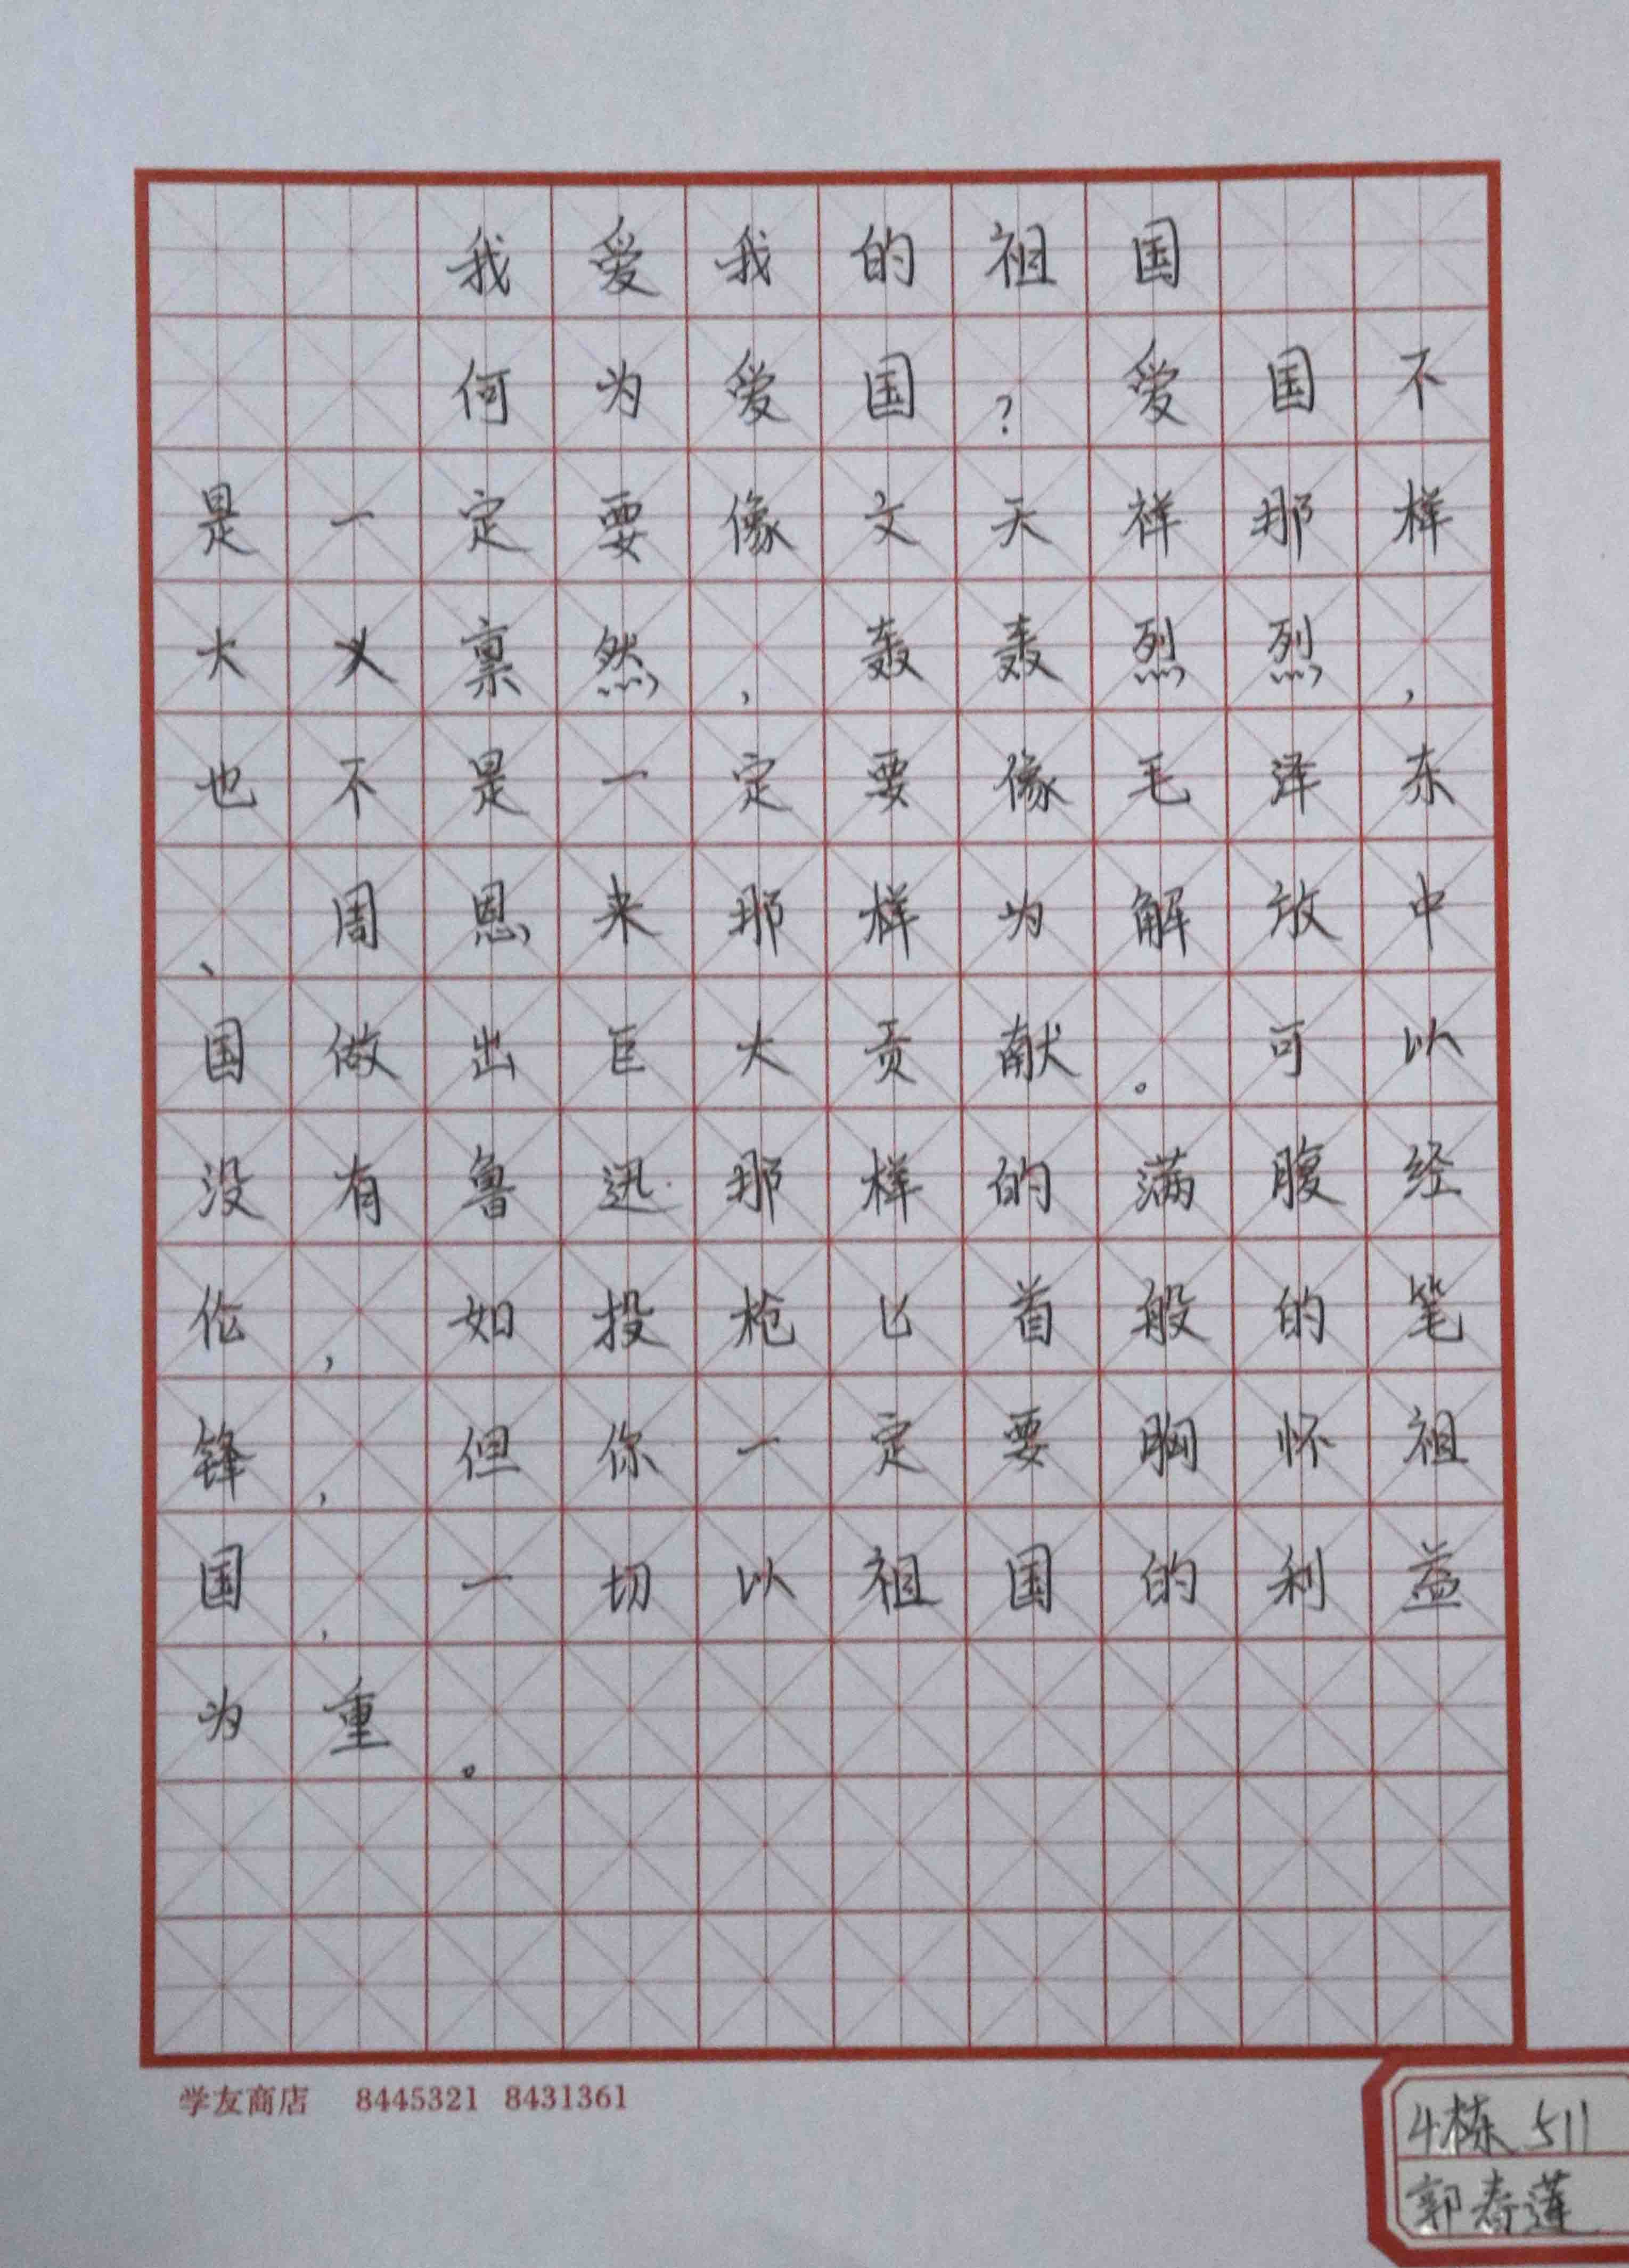 我爱我的祖国
何为爱国？爱国不
是一定要像文天祥那样
大义禀然，轰轰烈烈，
也不是一定要像毛泽东
、周恩来那样为解放中
国做出巨大贡献。可以
没有鲁迅那样的满腹经
伦，如投枪匕首般的笔
锋，但你一定要胸怀祖
国，一切以祖国的利益
为重。
学友商店 8445321 8431361
4栋 511
郭寿莲